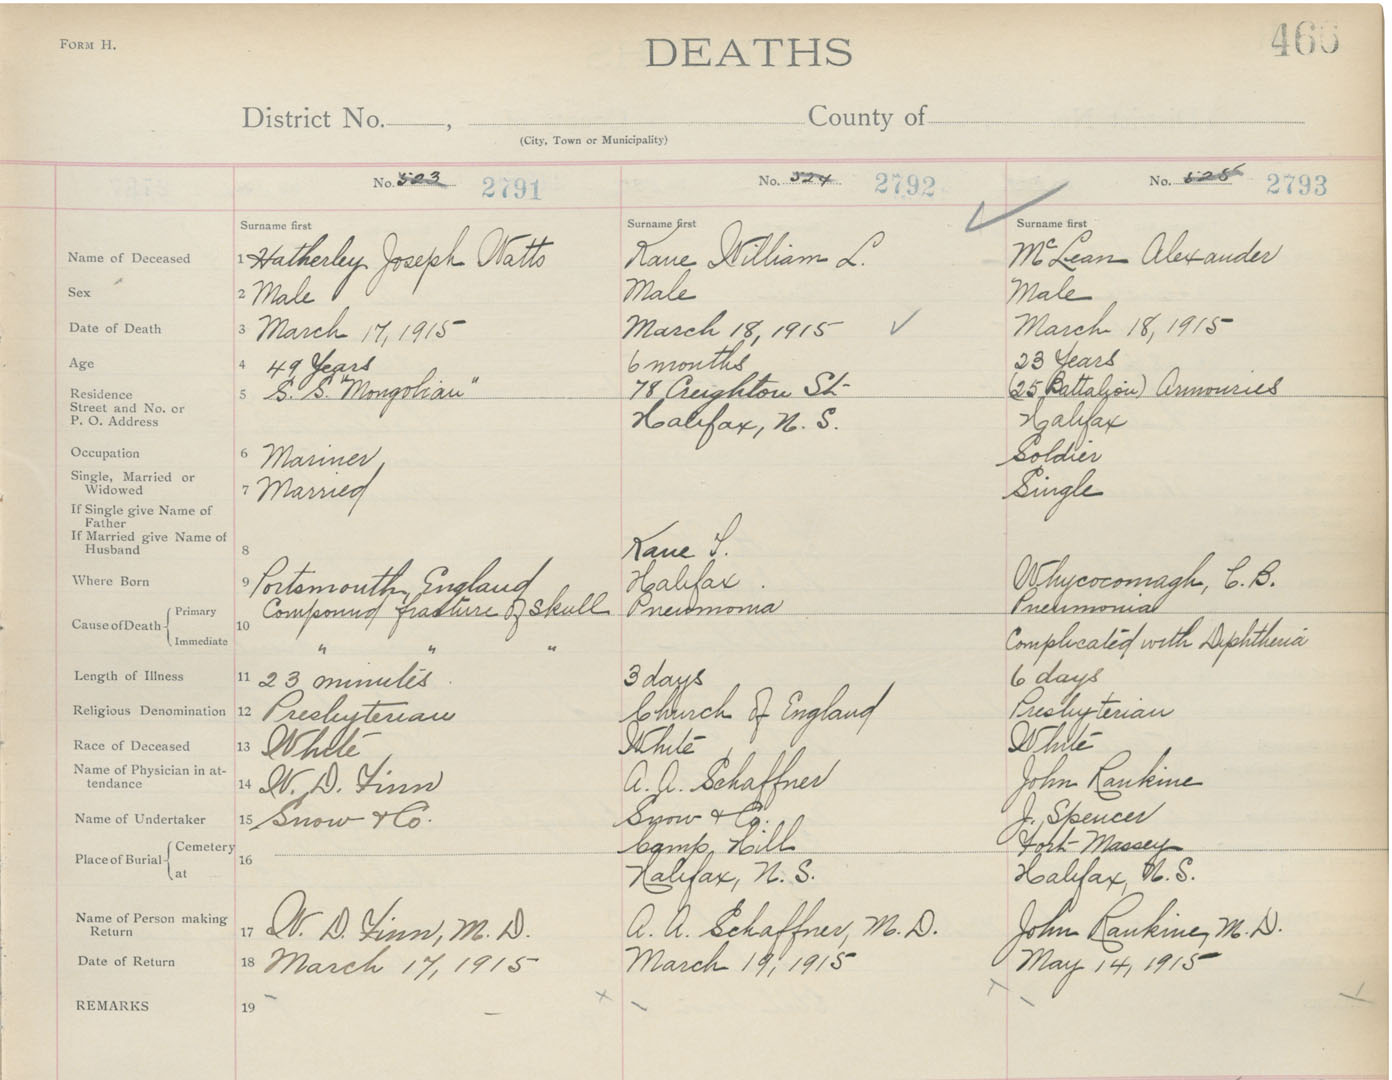 FORM H.
DEATHS
466
District No. , County of
(City, Town or Municipality)
No. 523 2791 No. 524 2792 No. 525 2793
Surname first Surname first Surname first
Name of Deceased 1 Hatherley Joseph Watts Kane William L. McLean Alexander
Sex 2 Male Male Male
Date of Death 3 March 17, 1915 March 18, 1915 March 18, 1915
Age 4 49 Years 6 months 23 Years
Residence 5 S. S. "Mongolian" 78 Creighton St (25 Battalion) Armouries
Street and No. or
P. O. Address Halifax, N. S. Halifax
Occupation 6 Mariner Soldier
Single, Married or
Widowed 7 Married Single
If Single give Name of
Father
If Married give Name of
Husband 8 Kane T.
Where Born 9 Portsmouth, England Halifax. Whycocomagh, C. B.
Cause of Death Primary 10 Compound fracture of Skull Pneumonia Pneumonia
Immediate " " " Complicated with Diphtheria
Length of Illness 11 23 minutes. 3 days 6 days
Religious Denomination 12 Presbyterian Church of England Presbyterian
Race of Deceased 13 White White White
Name of Physician in at-
tendance 14 W. D. Finn A. A. Schaffner John Rankine
Name of Undertaker 15 Snow & Co. Snow & Co. J. Spencer
Place of Burial Cemetery 16 Camp Hill Fort Massey
at Halifax, N. S. Halifax, N. S.
Name of Person making
Return 17 W. D. Finn, M. D. A. A. Schaffner, M. D. John Rankine, M. D.
Date of Return 18 March 17, 1915 March 19, 1915 May 14, 1915
REMARKS 19